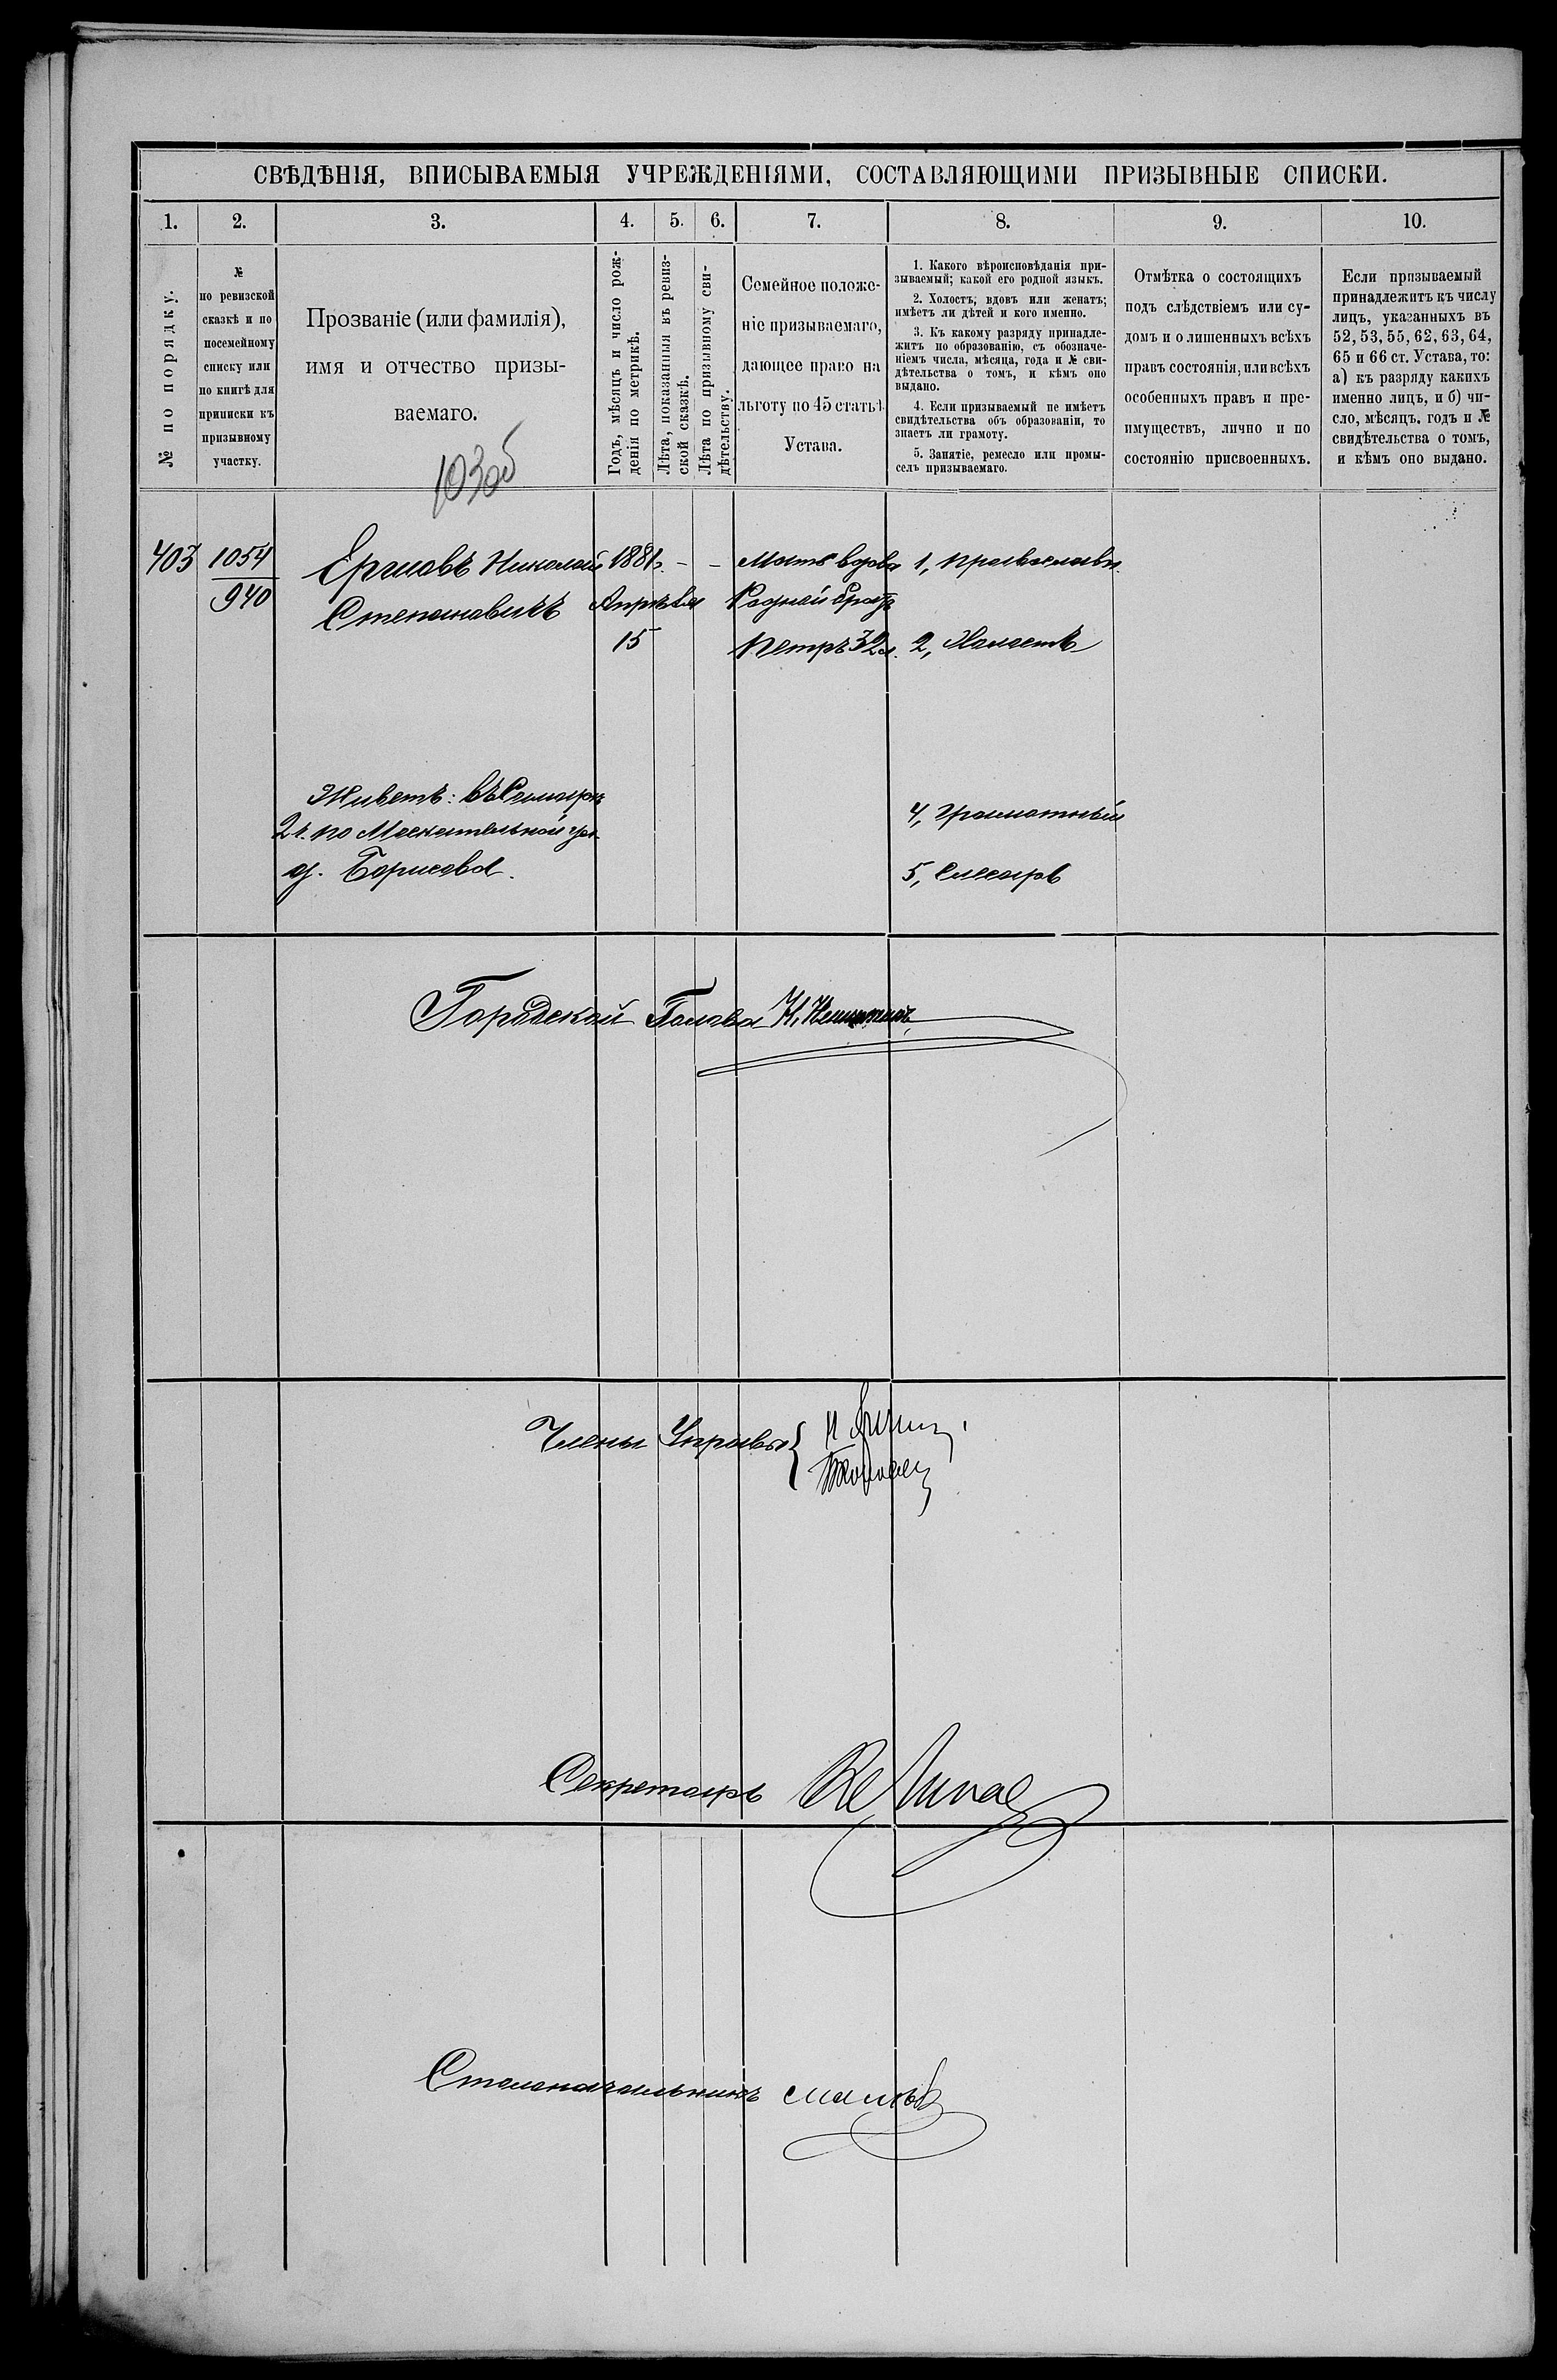 СВѢДѢНІЯ, ВПИСЫВАЕМЫЯ УЧРЕЖДЕНІЯМИ, СОСТАВЛЯЮЩИМИ ПРИЗЫВНЫЕ СПИСКИ.
1. 2. 3. 4. 5. 6. 7. 8. 9. 10.
№ по порядку.
№
по ревизской
сказкѣ и по
посемейному
списку или
по книгѣ для
приписки къ
призывному
участку.
Прозваніе (или фамилія),
имя и отчество призы-
ваемаго.
103об
Годъ, мѣсяцъ и число рож-
денія по метрикѣ.
Лѣта, показанныя въ ревиз-
ской сказкѣ.
Лѣта по призывному сви-
дѣтельству.
Семейное положе-
ніе призываемаго,
дающее право на
льготу по 45 статьѣ
Устава.
1. Какого вѣроисповѣданія при-
зываемый; какой его родной языкъ.
2. Холостъ, вдовъ или женатъ;
имѣетъ ли дѣтей и кого именно.
3. Къ какому разряду принадле-
житъ по образованію, съ обозначе-
ніемъ числа, мѣсяца, года и № сви-
дѣтельства о томъ, и кѣмъ оно
выдано.
4. Если призываемый не имѣетъ
свидѣтельства объ образованіи, то
знаетъ ли грамоту.
5. Занятіе, ремесло или промы-
селъ призываемаго.
Отмѣтка о состоящихъ
подъ слѣдствіемъ или су-
домъ и о лишенныхъ всѣхъ
правъ состоянія, или всѣхъ
особенныхъ правъ и пре-
имуществъ, лично и по
состоянію присвоенныхъ.
Если призываемый
принадлежитъ къ числу
лицъ, указанныхъ въ
52, 53, 55, 62, 63, 64,
65 и 66 ст. Устава, то:
а) къ разряду какихъ
именно лицъ, и б) чи-
сло, мѣсяцъ, годъ и №
свидѣтельства о томъ,
и кѣмъ оно выдано.
403
1054
940
Николай
Степановичъ
1881г.
Апрѣля
15
- -
Мать вдова
Родной братъ
Петръ 32 л.
1, Православн.
2, Холостъ
Живетъ: въ Самарѣ
2 ч. по Москательной ул.
д. Борисова.
4, Грамотный
5, Слесарь
Городской Голова
Члены Управы {
Секретарь
Столоначальникъ